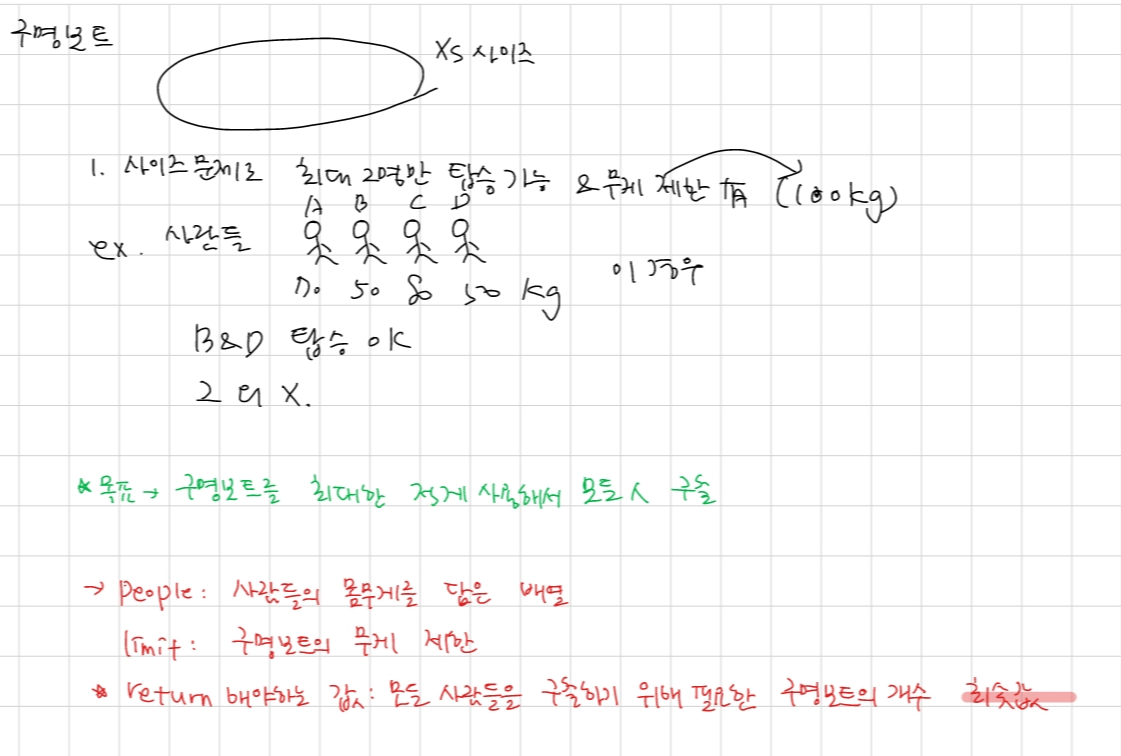 구명보트
XS 사이즈
1. 사이즈 문제로 최대 2명만 탑승 가능 & 무게 제한 有 (100kg)
A B C D
ex. 사람들
70 50 80 50 kg 이 경우
B&D 탑승 OK
그 외 X.
* 목표 → 구명보트를 최대한 적게 사용해서 모든 人 구출
→ people: 사람들의 몸무게를 담은 배열
limit: 구명보트의 무게 제한
* return 해야하는 값: 모든 사람들을 구출하기 위해 필요한 구명보트의 개수 최솟값